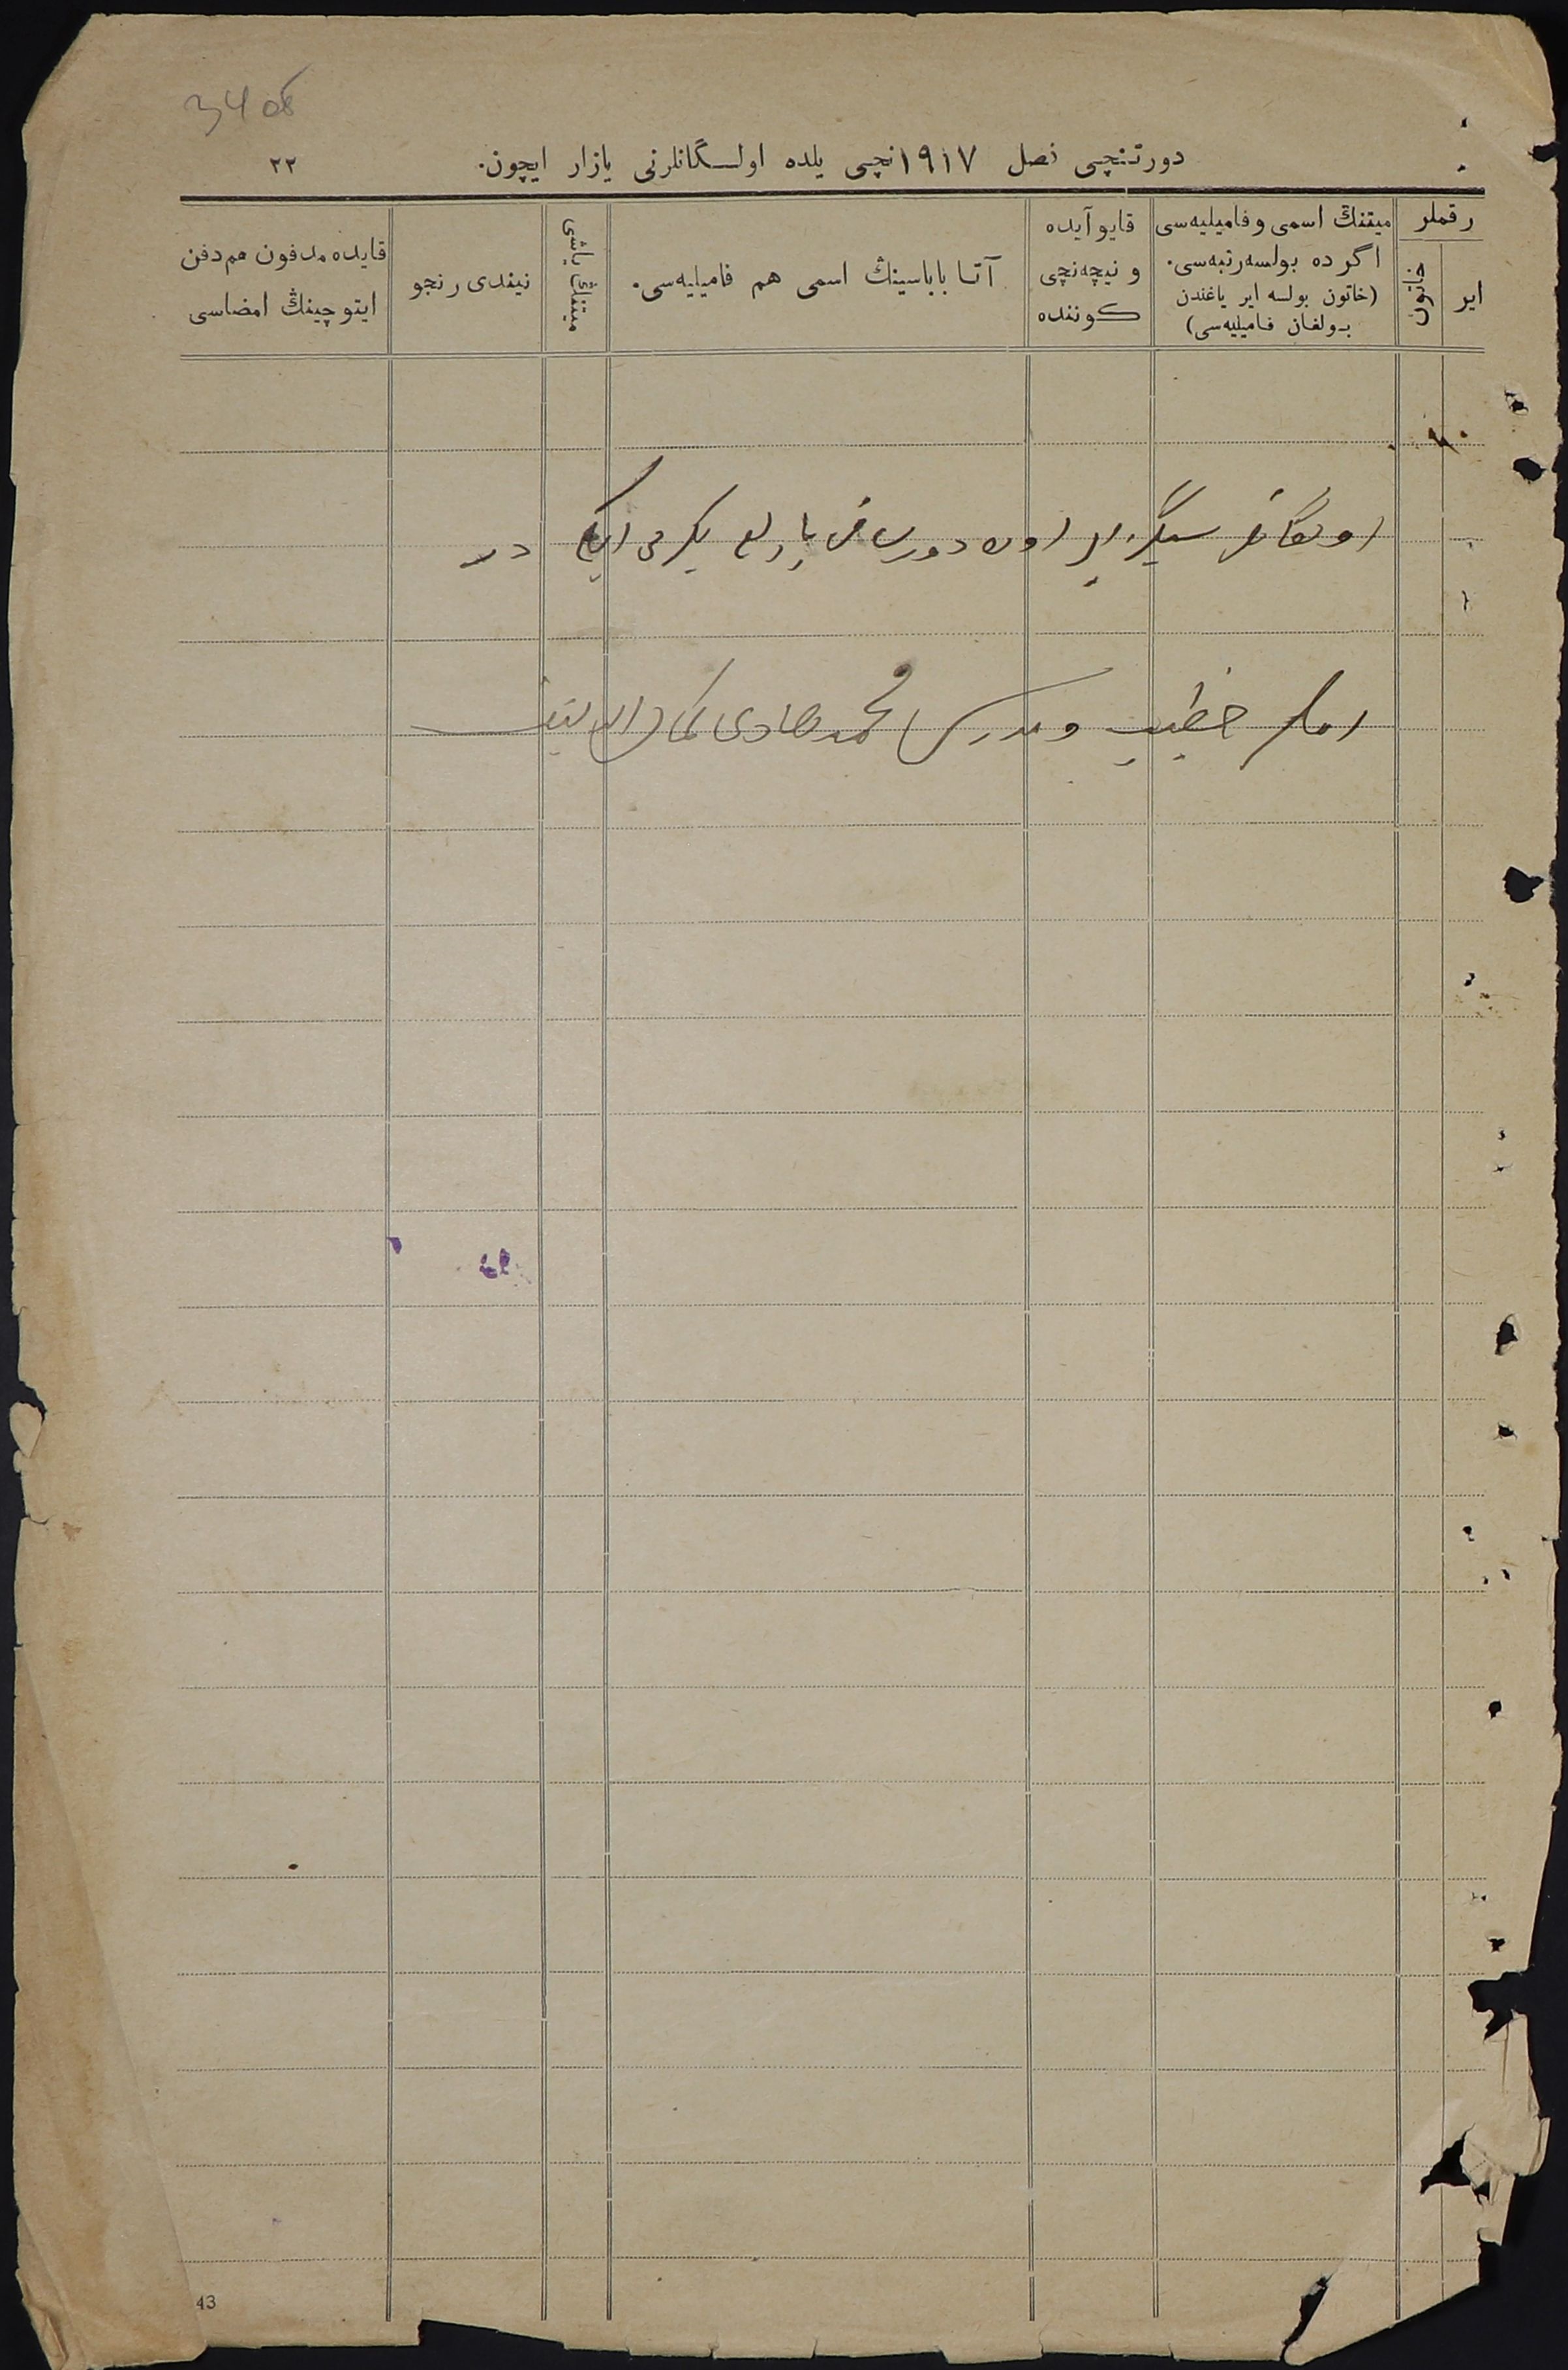 3408
دورتنچی فصل ۱۹۱۷نچی یلده اولـسگانلرنی یازار ایچون.
۲۳
رقملر
ایر
خاتون
میتنڭ اسمی و فامیلیه‌سی
اگر ده بولسه رتبه‌سی.
(خاتون بولسه ایر یاغندن
بولغان فامیلیه‌سی)
قایو آیده
و نیچه‌نچی
کوننده
آتا باباسینڭ اسمی هم فامیلیه‌سی.
میتنڭ یاشی
نیندی رنجو
قایده مدفون هم دفن
ایتوچینڭ امضاسی
اولگانلر سیگز ایر اون دورت قز بارلغی یکرمی ایکی در
امام خطیب و مدرس محمدهادی کمال الدینف
43